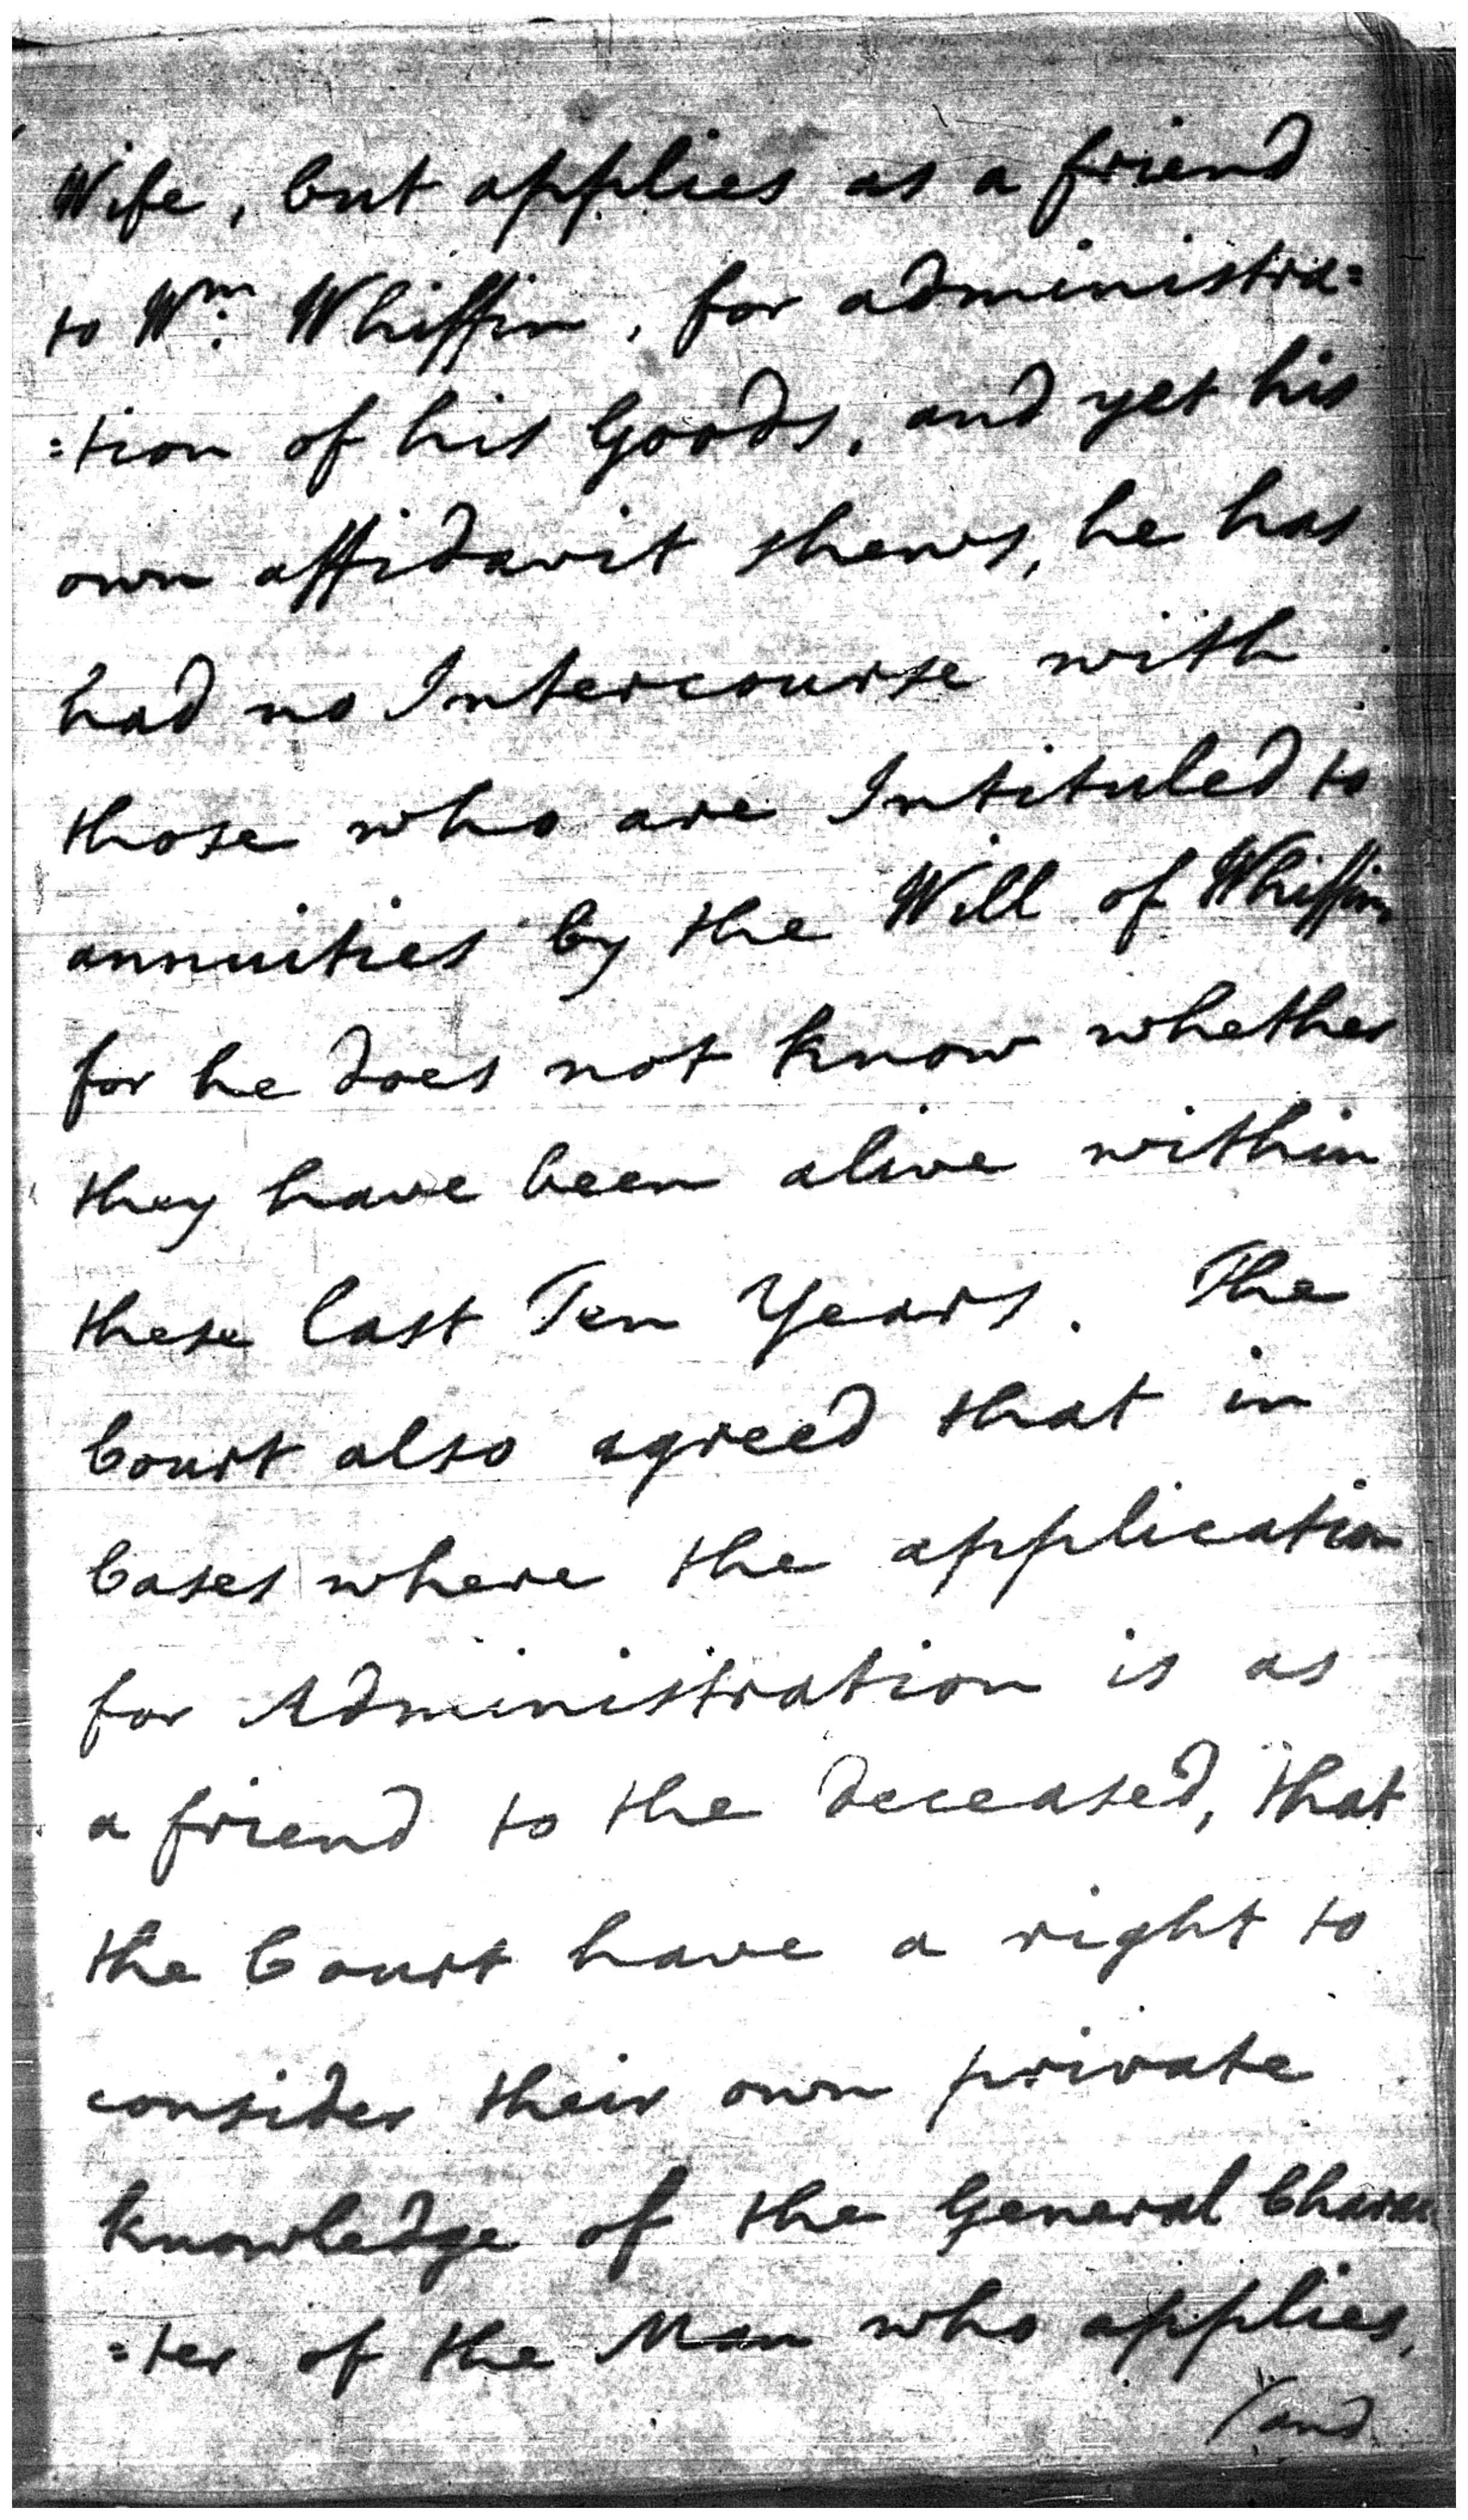 Wife, but applies as a friend
to Wm: Whiffin, for administra=
=tion of his Goods, and yet his
own affidavit shews, he has
had no Intercourse with
those who are Intituled to
annuities by the Will of Whiffin,
for he does not know whether
they have been alive within
these last Ten Years. The
Court also agreed that in
Cases where the application
for Administration is as
a friend to the deceased, that
the Court have a right to
consider their own private
knowledge of the General Charac
=ter of the Man who applies,
/and